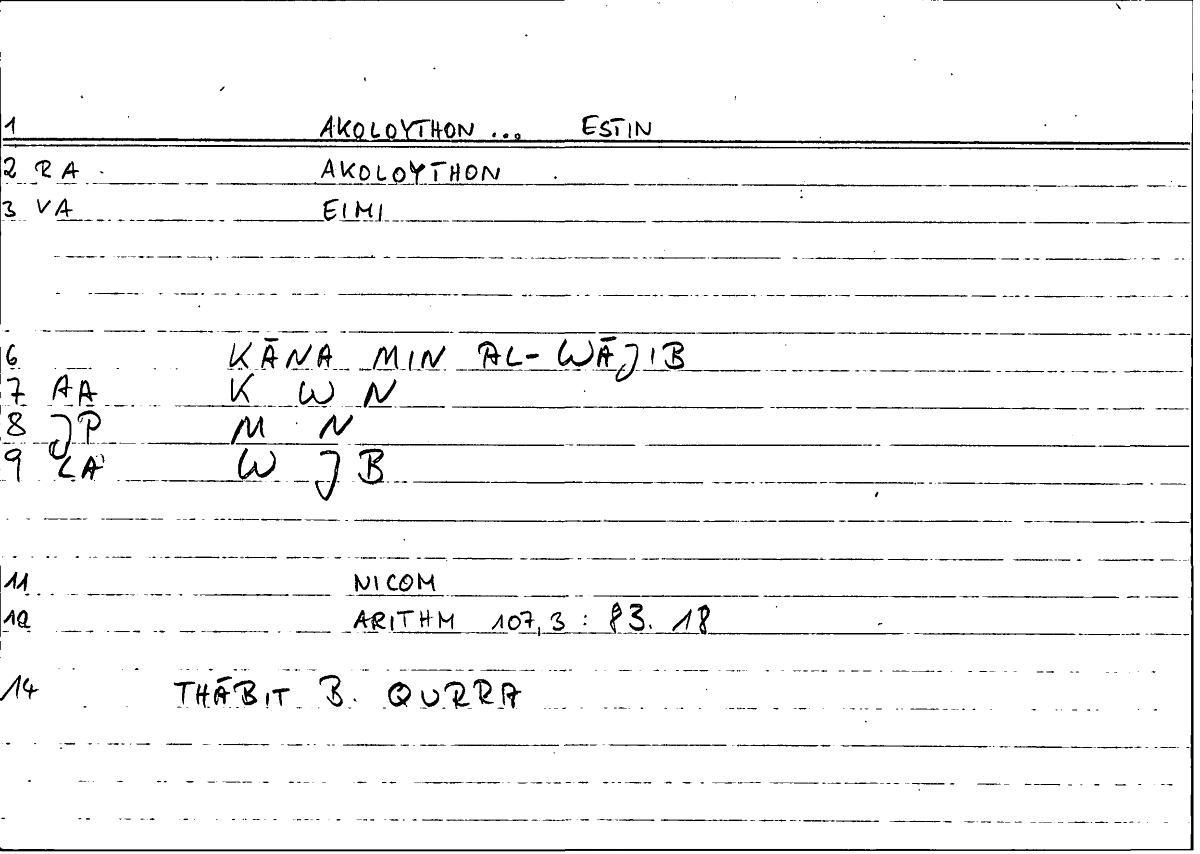 1 AKOLOYTHON ... ESTIN
2 RA AKOLOYTHON
3 VA EIMI
6 KĀNA MIN AL-WĀJIB
7 AA K W N
8 JP M N
9 LA W J B
11 NICOM
12 ARITHM 107,3 : 83.18
14 THĀBIT B. QURRA